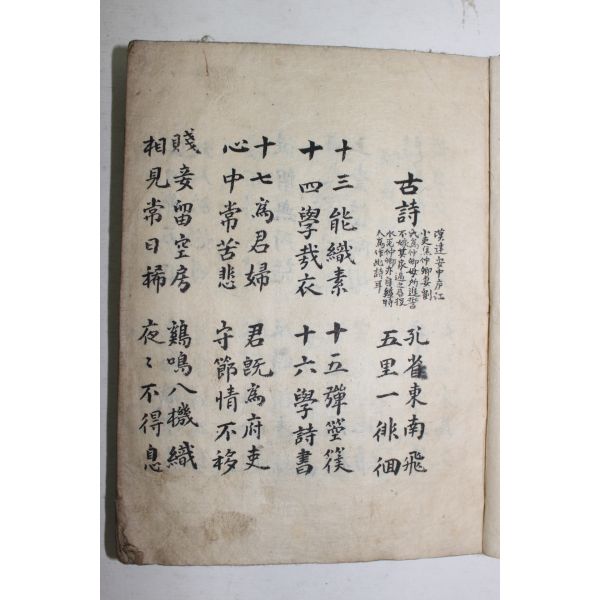 古詩
漢建安中庐江
小吏焦仲卿妻劉
氏為仲卿母所遣誓
不嫁其家逼之投
水死仲卿亦自縊時
人為作此詩耳
孔雀東南飛
五里一徘徊
十三能織素
十四學裁衣
十五彈箜篌
十六學詩書
十七爲君婦
心中常苦悲
君既爲府吏
守節情不移
賤妾留空房
相見常日稀
鷄鳴入機織
夜〻不得息